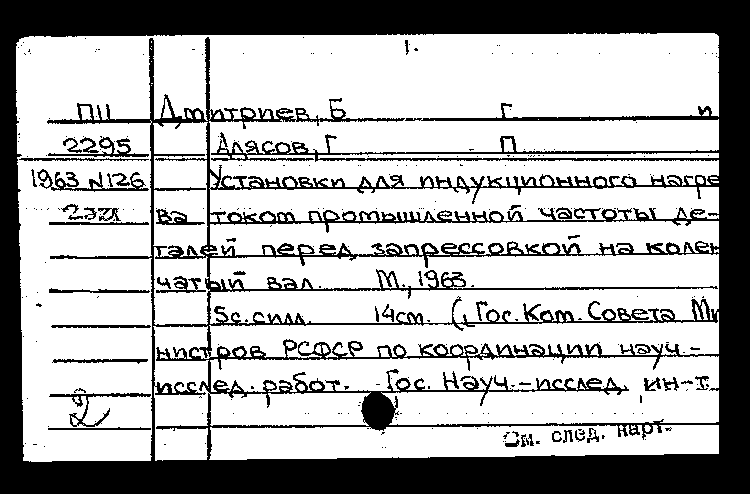 1.
П11 Дмитриев, Б Г и
2295 Алясов, Г П
1963 N126 Установки для индукционного нагре
ва током промышленной частоты де-
талей перед запрессовкой на колен
чатый вал. М., 1963.
5с. силл. 14см. (Гос. Ком. Совета Ми
нистров РСФСР по координации науч-
исслед. работ. Гос. Науч.-исслед. ин-т
2
См. след. карт.